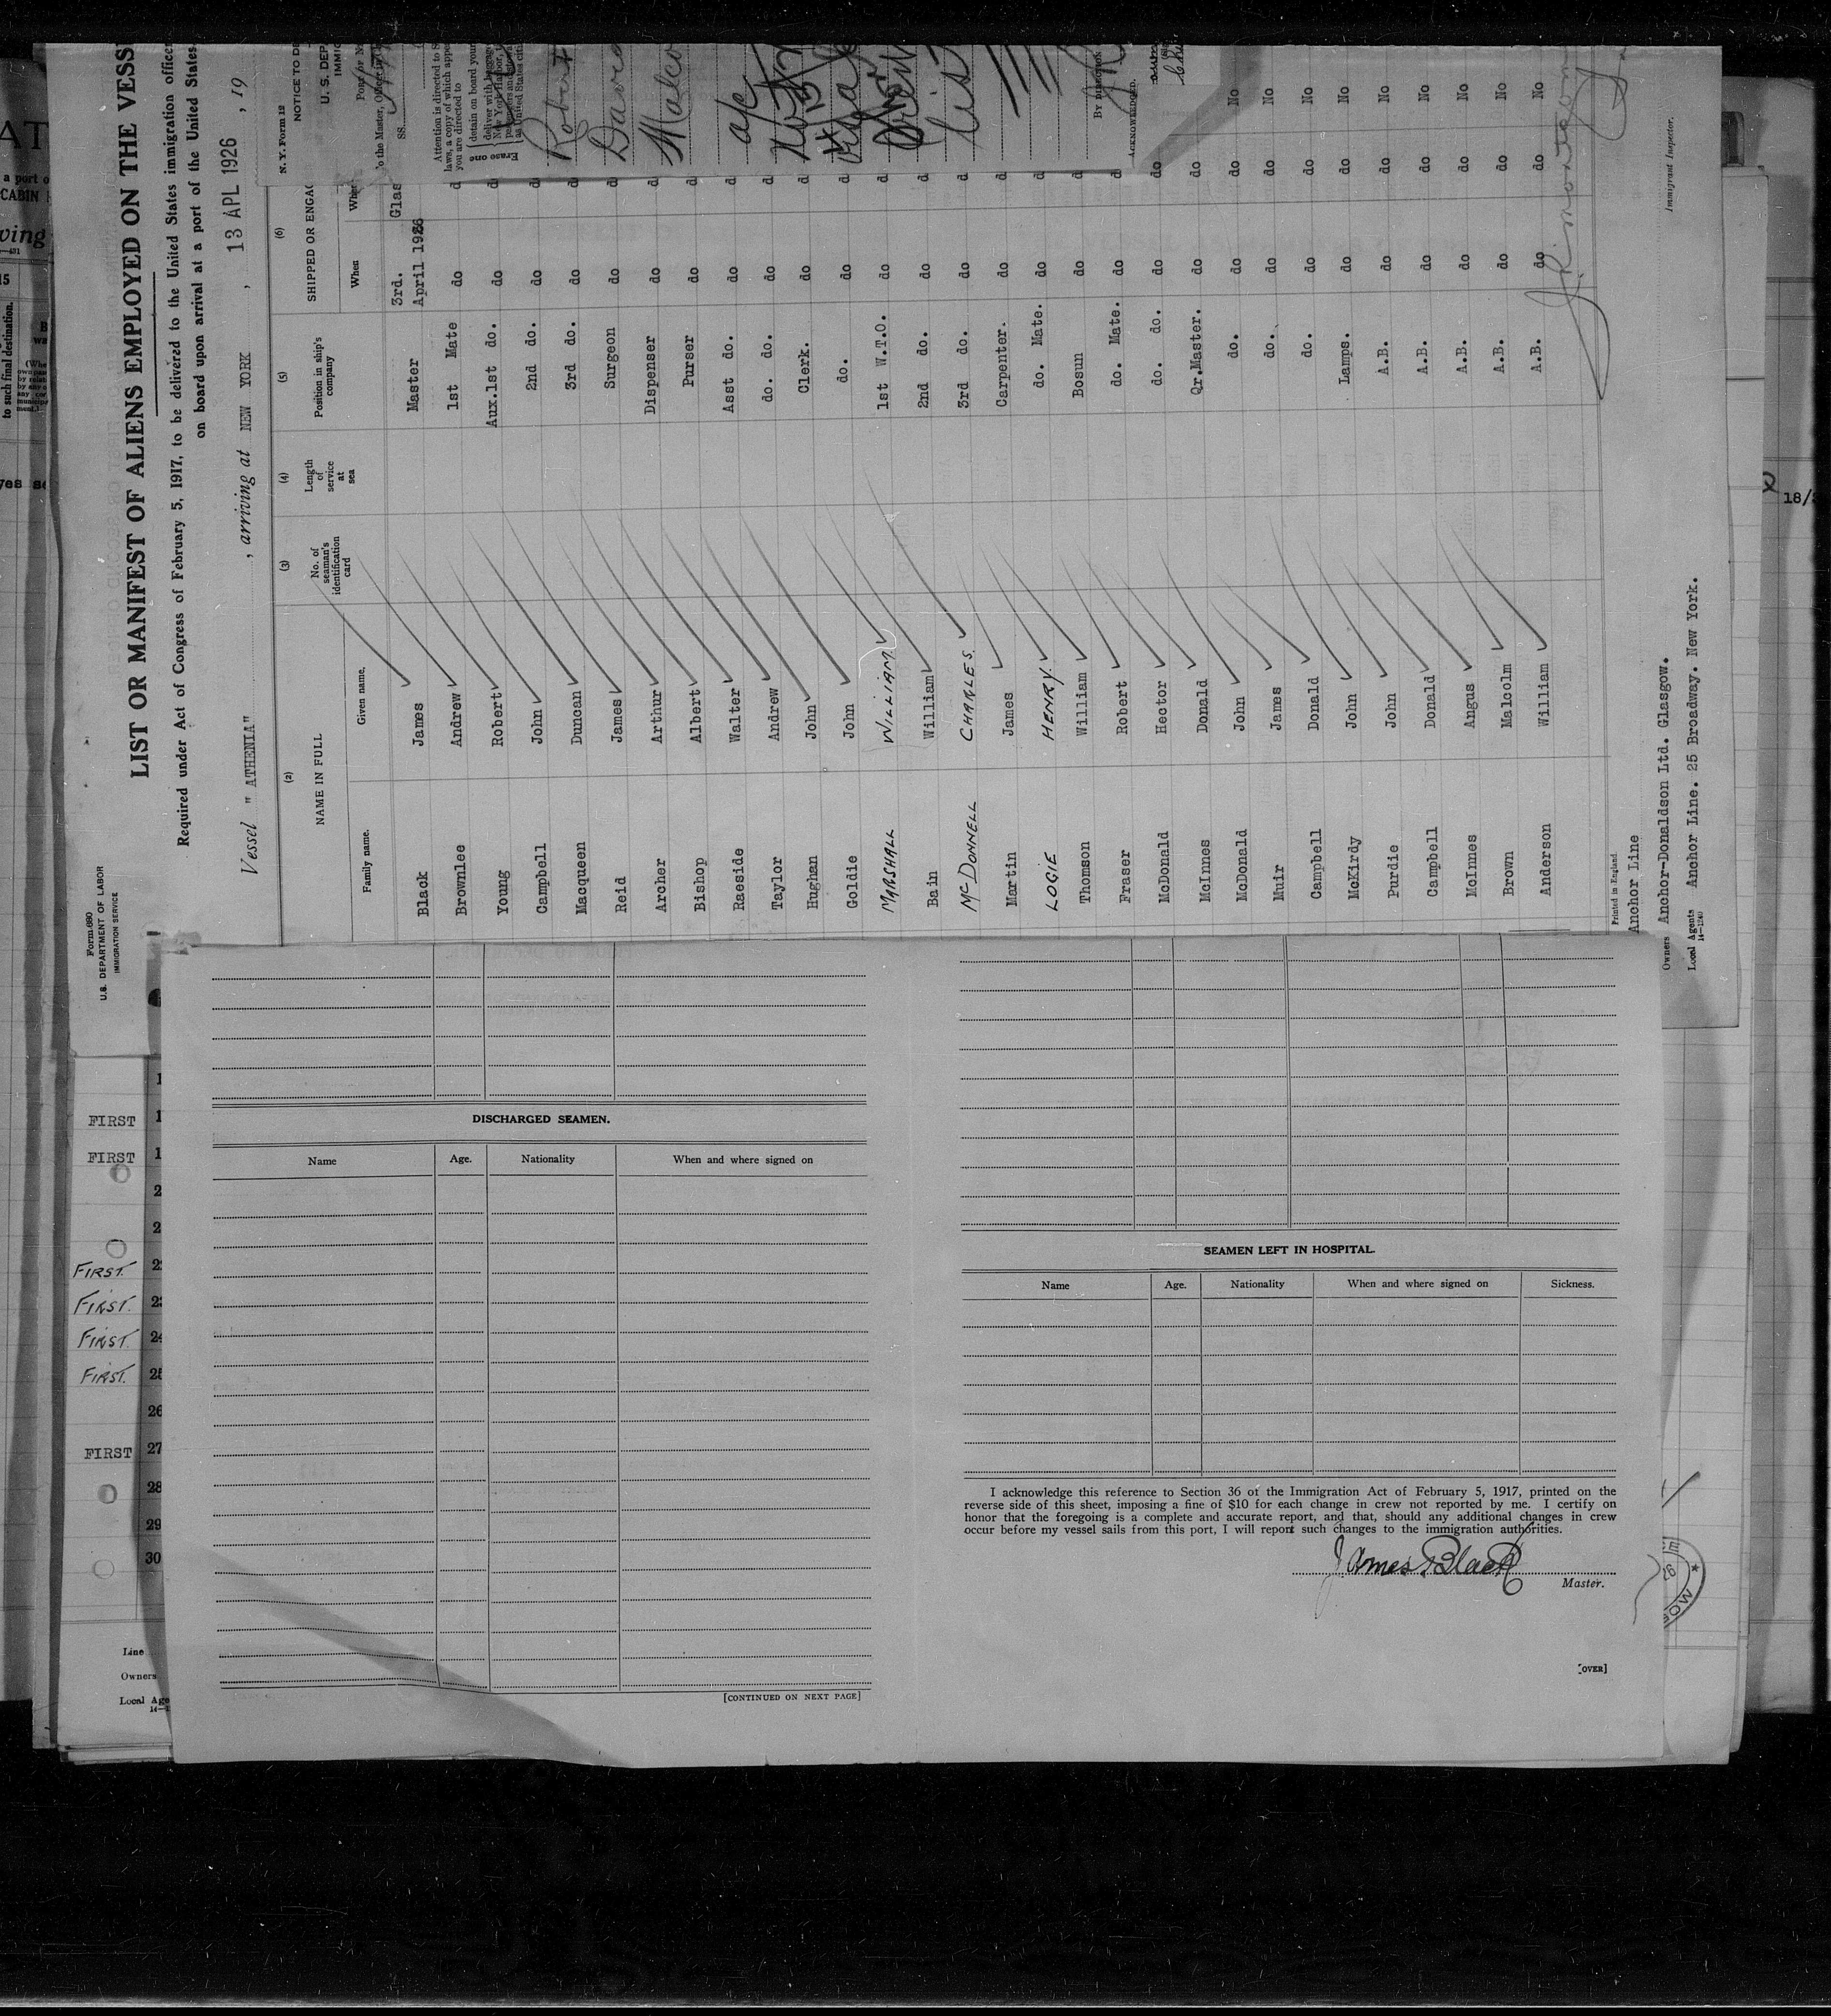 Form 680
U.S. DEPARTMENT OF LABOR
IMMIGRATION SERVICE
LIST OR MANIFEST OF ALIENS EMPLOYED ON THE VESS
Required under Act of Congress of February 5, 1917, to be delivered to the United States immigration officer
on board upon arrival at a port of the United States
Vessel " ATHENIA" , arriving at NEW YORK , 13 APL 1926 , 19
(2) (3) (4) (5) (6)
NAME IN FULL No. of seaman's identification card Length of service at sea Position in ship's company SHIPPED OR ENGAG
Family name. Given name. When Whe
Black James Master 3rd. April 1926 Glas
Brownlee Andrew 1st Mate do d
Young Robert Aux.1st do. do d
Campbell John 2nd do. do d
Macqueen Duncan 3rd do. do d
Reid James Surgeon do d
Archer Arthur Dispenser do d
Bishop Albert Purser do d
Raeside Walter Asst do. do d
Taylor Andrew do. do. do d
Hughan John Clerk. do d
Goldie John do. do d
MARSHALL WILLIAM 1st W.T.O. do d
Bain William 2nd do. do d
McDONNELL CHARLES. 3rd do. do d
Martin James Carpenter. do d
LOGIE HENRY. do. Mate. do d
Thomson William Bosun do d
Fraser Robert do. Mate. do d
McDonald Hector do. do. do do
McInnes Donald Qr.Master. do do
McDonald John do. do do No
Muir James do. do do No
Campbell Donald do. do do No
McKirdy John Lamps. do do No
Purdie John A.B. do do No
Campbell Donald A.B. do do No
McInnes Angus A.B. do do No
Brown Malcolm A.B. do do No
Anderson William A.B. do do No
Printed in England
Anchor Line
Owners Anchor-Donaldson Ltd. Glasgow.
Local Agents Anchor Line. 25 Broadway. New York.
14—1240
Immigrant Inspector.
N. Y. Form 12
NOTICE TO DE
U. S. DEP
IMMIC
Port of N
To the Master, Officer in
SS.
Attention is directed to S
laws, a copy of which appe
you are directed to
detain on board your
deliver with baggag
Erase one
Robert
David
Malco
ACKNOWLEDGED.
AT
a port o
CABIN
ving
to such final destination.
18/
DISCHARGED SEAMEN.
Name Age. Nationality When and where signed on
[CONTINUED ON NEXT PAGE]
SEAMEN LEFT IN HOSPITAL.
Name Age. Nationality When and where signed on Sickness.
I acknowledge this reference to Section 36 of the Immigration Act of February 5, 1917, printed on the
reverse side of this sheet, imposing a fine of $10 for each change in crew not reported by me. I certify on
honor that the foregoing is a complete and accurate report, and that, should any additional changes in crew
occur before my vessel sails from this port, I will report such changes to the immigration authorities.
James Black
Master.
[OVER]
FIRST 1
FIRST 1
2
2
FIRST. 2
FIRST. 23
FIRST. 24
FIRST. 25
26
FIRST 27
28
29
30
Line
Owners
Local Age